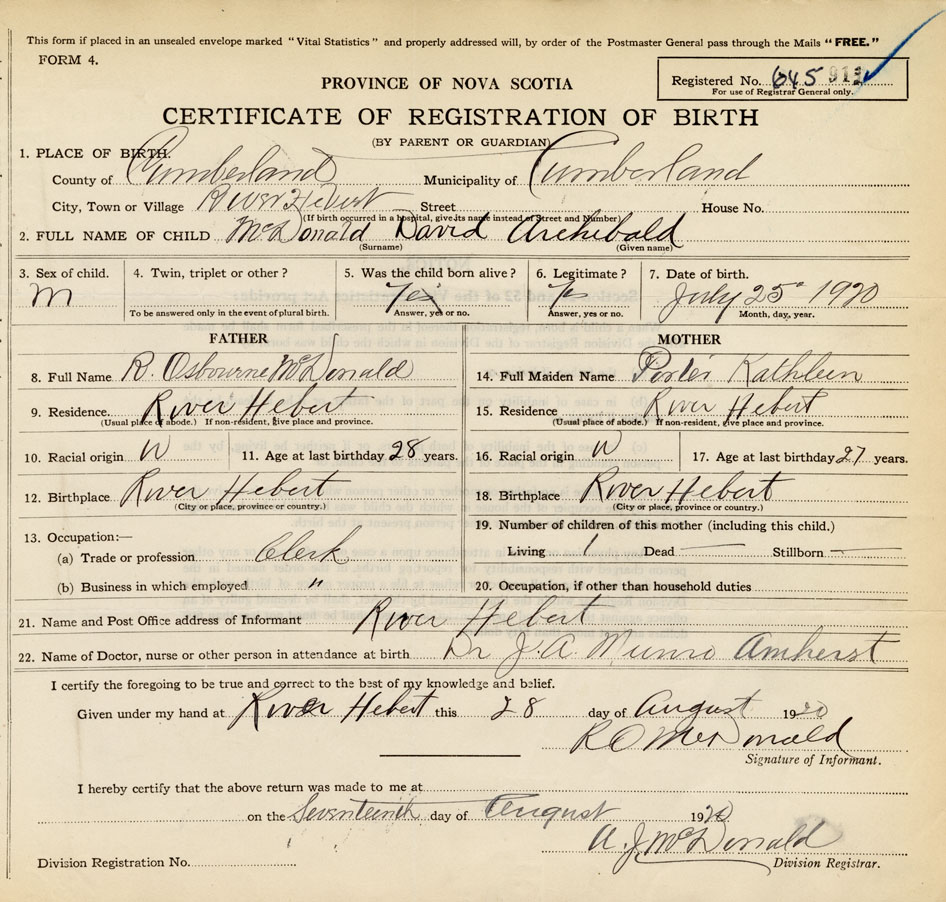 This form if placed in an unsealed envelope marked "Vital Statistics" and properly addressed will, by order of the Postmaster General pass through the Mails "FREE."
FORM 4.
Registered No. 645
For use of Registrar General only.
PROVINCE OF NOVA SCOTIA
CERTIFICATE OF REGISTRATION OF BIRTH
(BY PARENT OR GUARDIAN)
1. PLACE OF BIRTH.
County of Cumberland Municipality of Cumberland
City, Town or Village River Hebert Street House No.
(If birth occurred in a hospital, give its name instead of Street and Number)
2. FULL NAME OF CHILD McDonald David Archibald
(Surname) (Given name)
3. Sex of child. 4. Twin, triplet or other? 5. Was the child born alive? 6. Legitimate? 7. Date of birth.
M Yes Yes July 25 1920
To be answered only in the event of plural birth. Answer, yes or no. Answer, yes or no. Month, day, year.
FATHER MOTHER
8. Full Name R. Osbourne McDonald 14. Full Maiden Name Porter Kathleen
9. Residence. River Hebert 15. Residence River Hebert
(Usual place of abode.) If non-resident, give place and province. (Usual place of abode.) If non-resident, give place and province.
10. Racial origin W 11. Age at last birthday 28 years. 16. Racial origin W 17. Age at last birthday 27 years.
12. Birthplace River Hebert 18. Birthplace River Hebert
(City or place, province or country.) (City or place, province or country.)
13. Occupation:— 19. Number of children of this mother (including this child.)
(a) Trade or profession Clerk Living 1 Dead — Stillborn —
(b) Business in which employed " 20. Occupation, if other than household duties
21. Name and Post Office address of Informant River Hebert
22. Name of Doctor, nurse or other person in attendance at birth Dr J. A. Munro Amherst
I certify the foregoing to be true and correct to the best of my knowledge and belief.
Given under my hand at River Hebert this 28 day of August 1920
R O McDonald
Signature of Informant.
I hereby certify that the above return was made to me at
on the Seventeenth day of August 1920
A. J. McDonald
Division Registration No. Division Registrar.